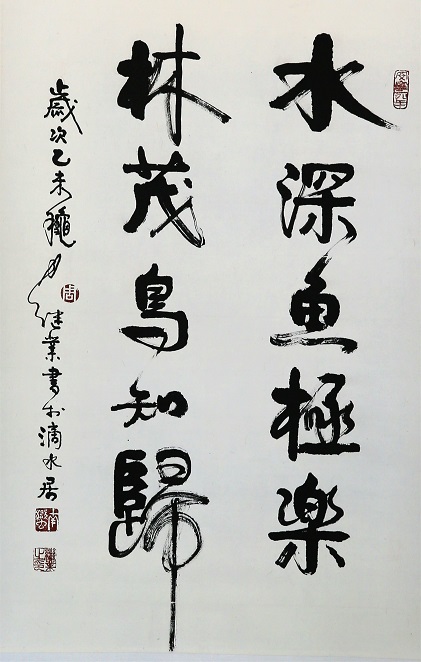 水深魚極楽
林茂鳥知歸
歲次乙未穐月继業書於滴水居